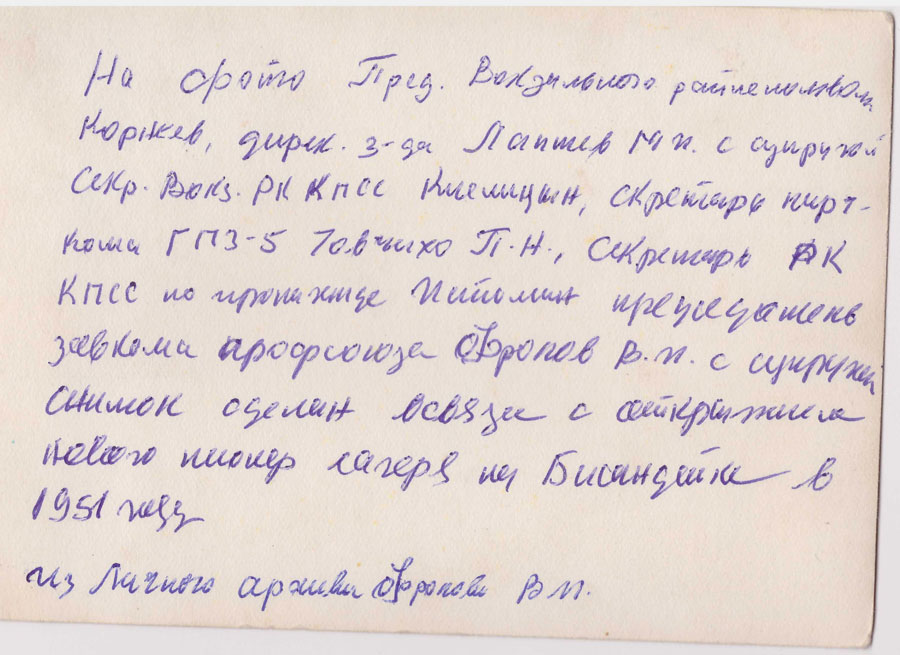 На фото Пред. Вокзального райисполкома
Коржев, дирек. з-да Лаптев М.П. с супругой
Секр. Вокз. РК КПСС Кмелицын, секретарь парт-
кома ГПЗ-5 Товчихо П.Н., Секретарь РК
КПСС по пропаганде Истомин председатель
завкома профсоюза Офропов В.П. с супругой
Снимок сделан всвязи с открытием
нового пионер лагеря на Басандайке в
1951 году
из Личного архива Офропова В.П.